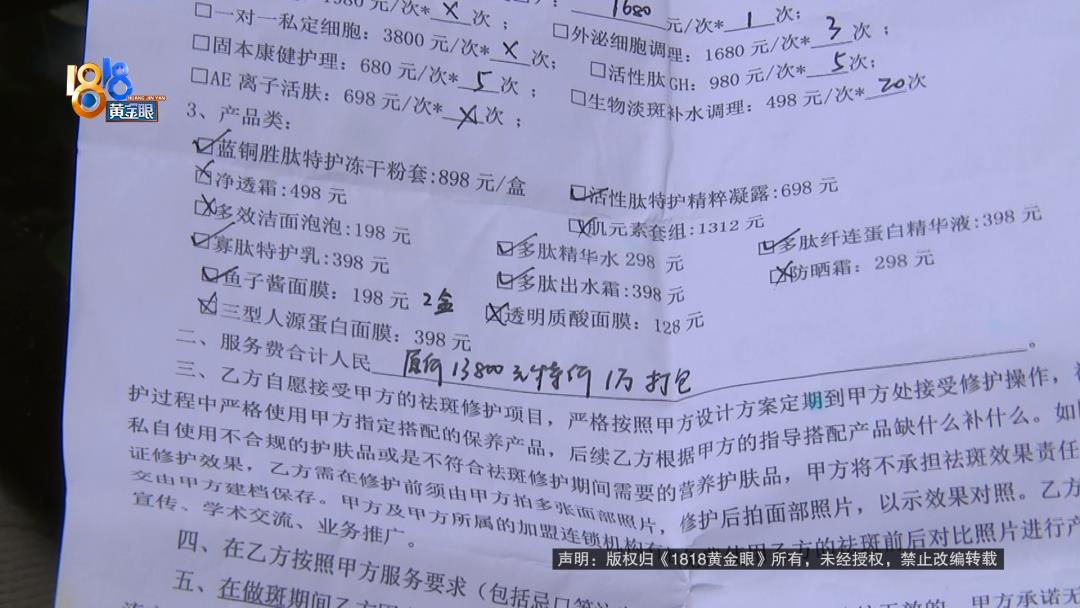 1980元/次* X 次；
1680 元/次* 1 次；
□一对一私定细胞：3800元/次* X 次；
□外泌细胞调理：1680元/次* 3 次；
□固本康健护理：680元/次* 5 次；
□活性肽GH：980元/次* 5 次；
□AE离子活肤：698元/次* X 次；
□生物淡斑补水调理：498元/次* 20 次
3、产品类：
☑蓝铜胜肽特护冻干粉套:898元/盒
☑活性肽特护精粹凝露:698元
☒净透霜:498元
☒多效洁面泡泡:198元
☒肌元素套组:1312元
☑寡肽特护乳:398元
☑多肽精华水298元
☑多肽纤连蛋白精华液:398元
☑鱼子酱面膜：198元 2盒
☑多肽出水霜:398元
☒防晒霜：298元
☒三型人源蛋白面膜：398元
☒透明质酸面膜：128元
二、服务费合计人民 原价13800元特价1万打包 。
三、乙方自愿接受甲方的祛斑修护项目，严格按照甲方设计方案定期到甲方处接受修护操作，
护过程中严格使用甲方指定搭配的保养产品，后续乙方根据甲方的指导搭配产品缺什么补什么。如
私自使用不合规的护肤品或是不符合祛斑修护期间需要的营养护肤品，甲方将不承担祛斑效果责任
证修护效果，乙方需在修护前须由甲方拍多张面部照片，修护后拍面部照片，以示效果对照。乙方
交由甲方建档保存。甲方及甲方所属的加盟连锁机构有 使用乙方的祛斑前后对比照片进行产
宣传、学术交流、业务推广。
四、在乙方按照甲方服务要求（包括忌口等
五、在做斑期间乙方
甲方承诺无
1818
HUANG JIN YAN
黄金眼
声明：版权归《1818黄金眼》所有，未经授权，禁止改编转载